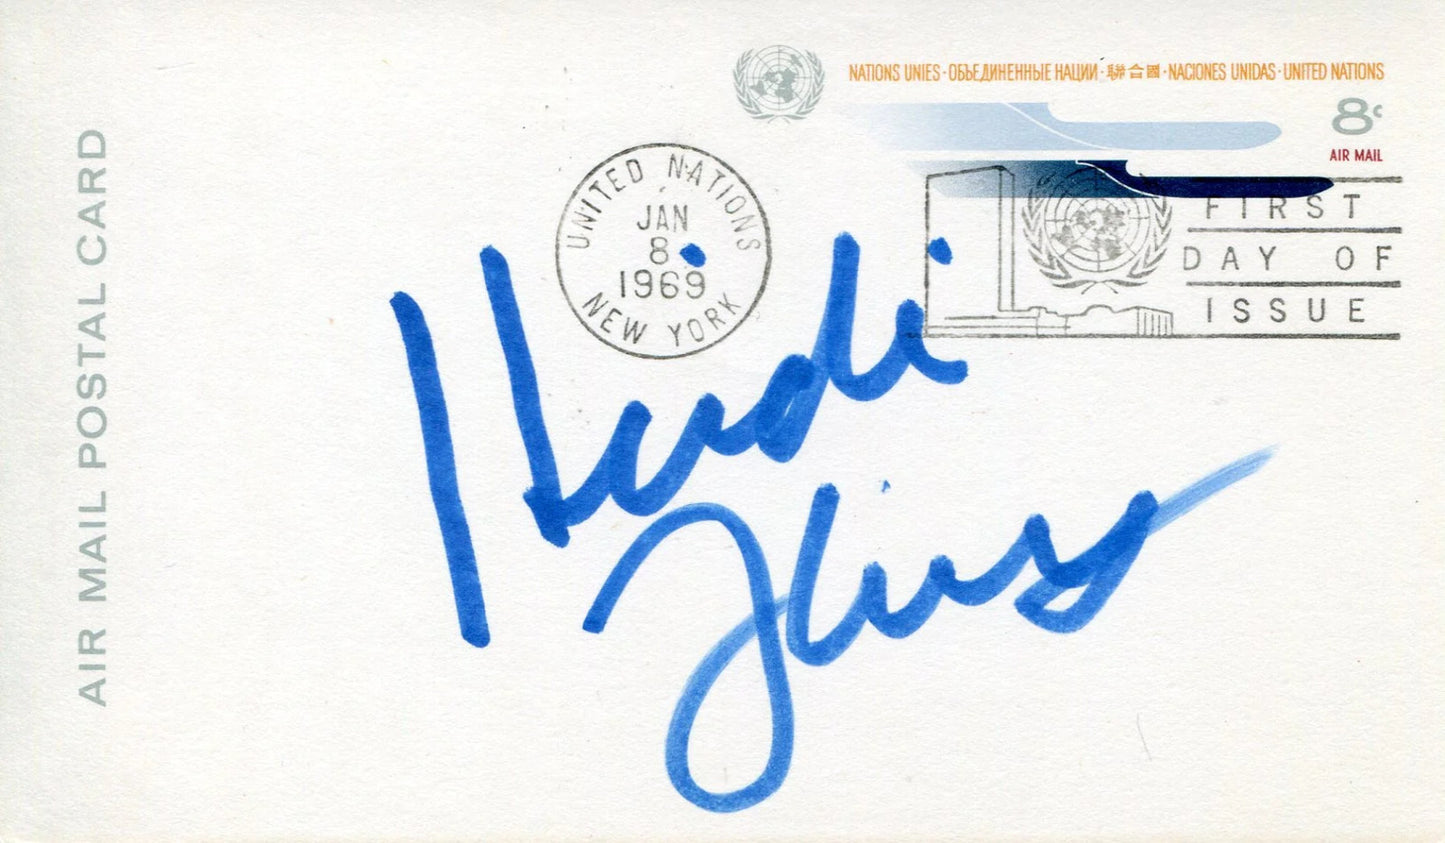 NATIONS UNIES · ОБЪЕДИНЕННЫЕ НАЦИИ · 聯合國 · NACIONES UNIDAS · UNITED NATIONS
8c
AIR MAIL
AIR MAIL POSTAL CARD
UNITED NATIONS
JAN
8
1969
NEW YORK
FIRST
DAY OF
ISSUE
Heidi